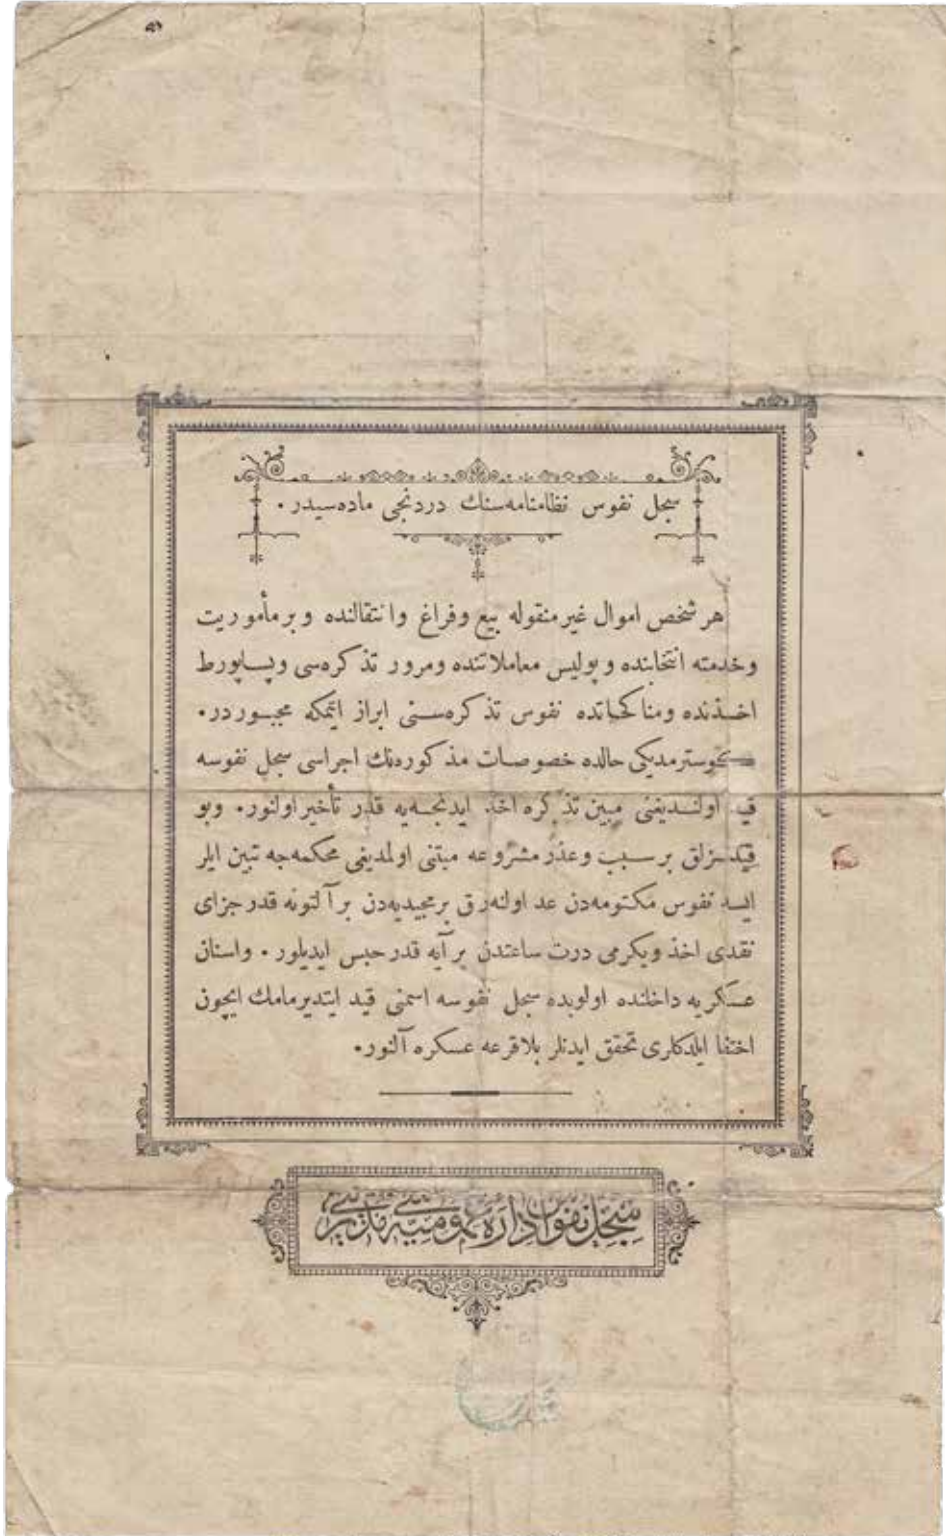 سجل نفوس نظامنامه‌سنك دردنجی ماده‌سیدر ٠
هر شخص اموال غیر منقوله بیع وفراغ وانتقالنده وبر مأموریت
وخدمته انتخابنده وپولیس معاملاتنده ومرور تذكره‌سی وپساپورط
اخـذنده ومناكحاتده نفوس تذكره‌سـنی ابراز ایتمكه مجبـوردر ٠
كوسترمدیكی حالده خصوصـات مذكوره‌نك اجراسی سجل نفوسه
قید اولنـدیغنی مبین تذكره اخذ ایدنجـه‌یه قدر تأخیر اولنور ٠ وبو
قیدسزلق بر سـبب وعذر مشروعه مبتنی اولمدیغی محكمه‌جه تبین ایلر
ایسه نفوس مكتومه‌دن عد اولنه‌رق بر مجیدیه‌دن بر آلتونه قدر جزای
نقدی اخذ ویكرمی درت ساعتدن بر آیه قدر حبس ایدیلور ٠ واسنان
عسكریه داخلنده اولوبده سجل نفوسه اسمنی قید ایتدیرمامك ایچون
اختفا ایلدكلری تحقق ایدنلر بلاقرعه عسكره آلنور ٠
سجل نفوس اداره عمومیه‌سی